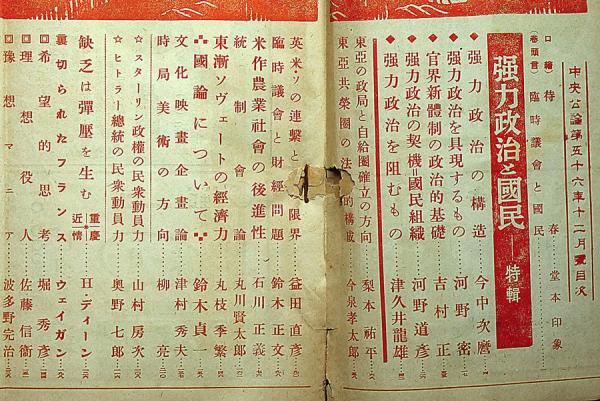 中央公論第五十六年十二月號目次
口繪 待春 堂本印象
(卷頭言) 臨時議會と國民
强力政治と國民――特輯
◆强力政治の構造 今中次麿
◆强力政治を具現するもの 河野密
◆官界新體制の政治的基礎 吉村正
◆强力政治の契機=國民組織 河野道彥
◆强力政治を阻むもの 津久井龍雄
東亞の政局と自給圈確立の方向 梨本祐平
東亞共榮圈の法的構成 今泉孝太郎
英米・ソの連繫と限界 益田直彥
臨時議會と財經問題 鈴木正文
米作農業社會の後進性 石川正義
統制會論 丸川賢太郎
東漸ソヴェートの經濟力 丸枝季繁
國論について 鈴木貞一
文化映畫企畫論 津村秀夫
時局美術の方向 柳亮
☆スターリン政權の民衆動員力 山村房次
☆ヒトラー總統の民衆動員力 奧野七郎
缺乏は彈壓を生む 重慶近情 H・ディーン
裏切られたフランス ウェイガン
希望的思考 堀秀彥
理想役人 佐藤信衞
豫想マニア 波多野完治